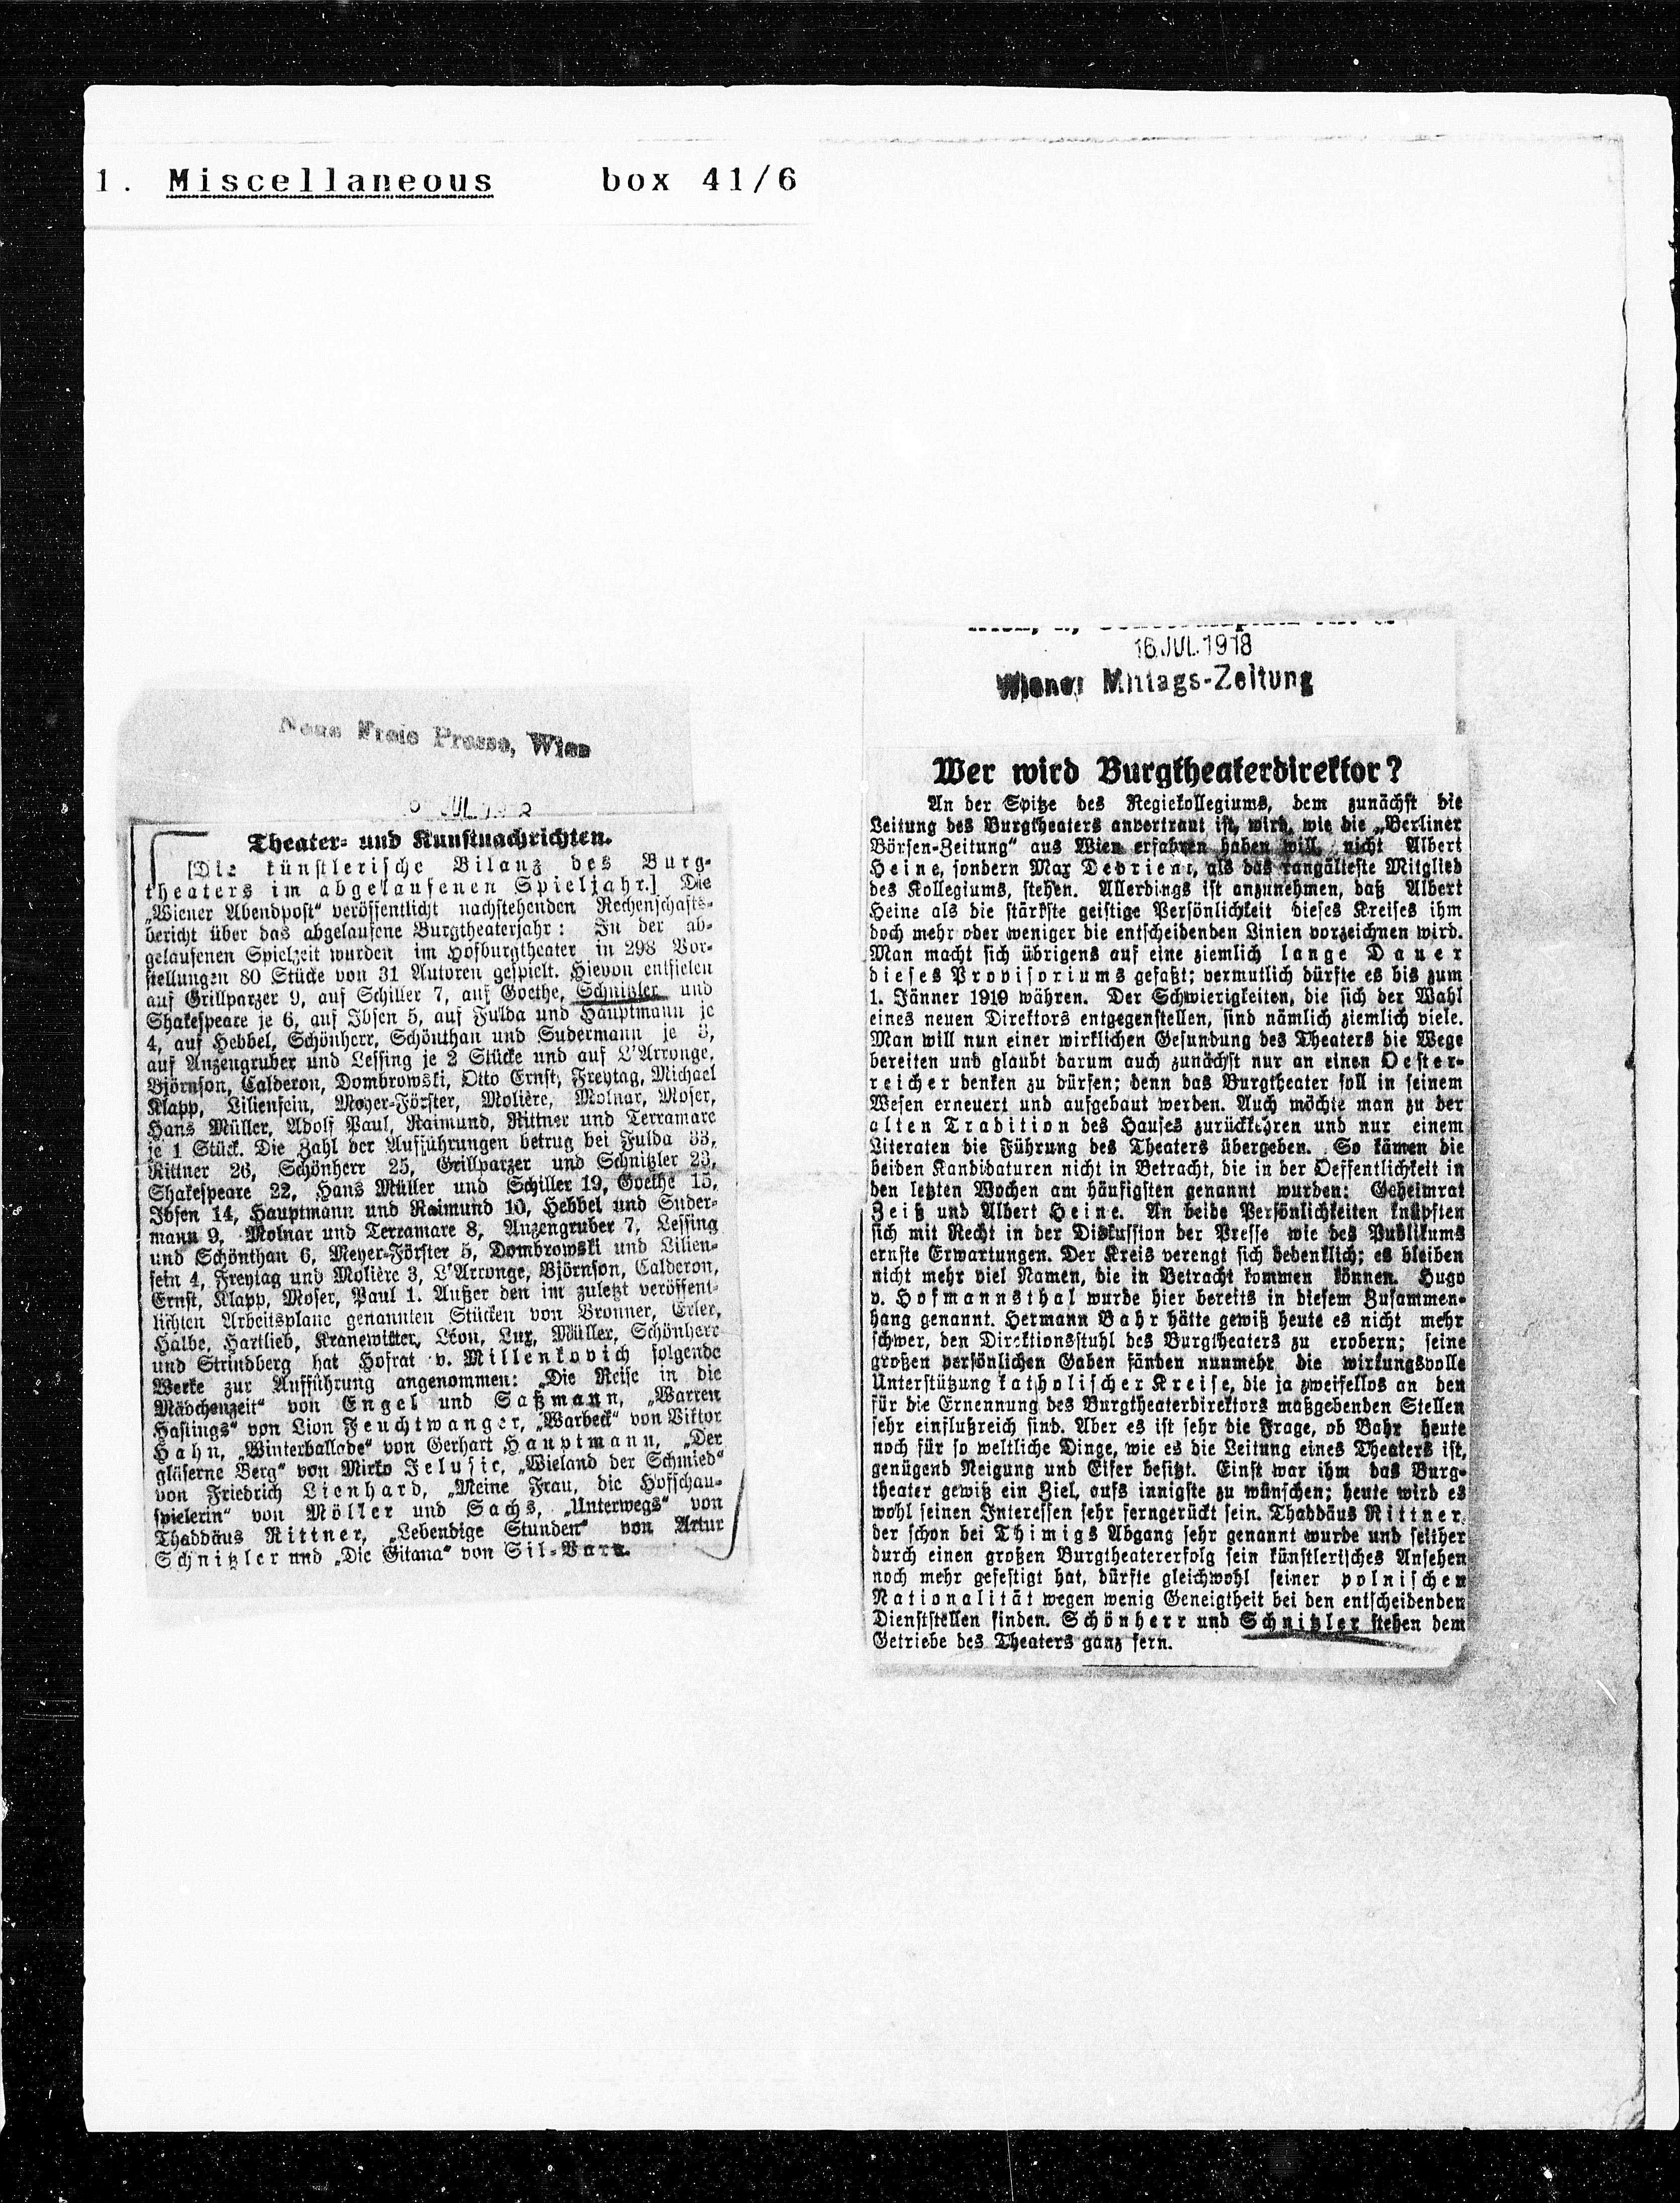 1. Miscellaneous box 41/6
Neue Freie Presse, Wien
JUL
Theater- und Kunstnachrichten.
[Die künstlerische Bilanz des Burg-
theaters im abgelaufenen Spieljahr.] Die
„Wiener Abendpost“ veröffentlicht nachstehenden Rechenschafts-
bericht über das abgelaufene Burgtheaterjahr: In der ab-
gelaufenen Spielzeit wurden im Hofburgtheater in 298 Vor-
stellungen 80 Stücke von 31 Autoren gespielt. Hievon entfielen
auf Grillparzer 9, auf Schiller 7, auf Goethe, Schnitzler und
Shakespeare je 6, auf Ibsen 5, auf Fulda und Hauptmann je
4, auf Hebbel, Schönherr, Schönthan und Sudermann je 3,
auf Anzengruber und Lessing je 2 Stücke und auf L'Arronge,
Björnson, Calderon, Dombrowski, Otto Ernst, Freytag, Michael
Klapp, Lilienfein, Meyer-Förster, Molière, Molnar, Moser,
Hans Müller, Adolf Paul, Raimund, Rittner und Terramare
je 1 Stück. Die Zahl der Aufführungen betrug bei Fulda 33,
Rittner 26, Schönherr 25, Grillparzer und Schnitzler 23,
Shakespeare 22, Hans Müller und Schiller 19, Goethe 15,
Ibsen 14, Hauptmann und Raimund 10, Hebbel und Suder-
mann 9, Molnar und Terramare 8, Anzengruber 7, Lessing
und Schönthan 6, Meyer-Förster 5, Dombrowski und Lilien-
fein 4, Freytag und Molière 3, L'Arronge, Björnson, Calderon,
Ernst, Klapp, Moser, Paul 1. Außer den im zuletzt veröffent-
lichten Arbeitsplane genannten Stücken von Bronner, Erler,
Halbe, Hartlieb, Kranewitter, Léon, Lux, Müller, Schönherr
und Strindberg hat Hofrat v. Millenkovich folgende
Werke zur Aufführung angenommen: „Die Reise in die
Mädchenzeit“ von Engel und Saßmann, „Warren
Hastings“ von Lion Feuchtwanger, „Warbeck“ von Viktor
Hahn, „Winterballade“ von Gerhart Hauptmann, „Der
gläserne Berg“ von Mirko Jelusic, „Wieland der Schmied“
von Friedrich Lienhard, „Meine Frau, die Hofschau-
spielerin“ von Möller und Sachs, „Unterwegs“ von
Thaddäus Rittner, „Lebendige Stunden“ von Artur
Schnitzler und „Die Gitana“ von Sil-Vara.
16. JUL. 1918
Wiener Mittags-Zeitung
Wer wird Burgtheaterdirektor?
An der Spitze des Regiekollegiums, dem zunächst die
Leitung des Burgtheaters anvertraut ist, wird, wie die „Berliner
Börsen-Zeitung“ aus Wien erfahren haben will, nicht Albert
Heine, sondern Max Devrient, als das rangälteste Mitglied
des Kollegiums, stehen. Allerdings ist anzunehmen, daß Albert
Heine als die stärkste geistige Persönlichkeit dieses Kreises ihm
doch mehr oder weniger die entscheidenden Linien vorzeichnen wird.
Man macht sich übrigens auf eine ziemlich lange Dauer
dieses Provisoriums gefaßt; vermutlich dürfte es bis zum
1. Jänner 1919 währen. Der Schwierigkeiten, die sich der Wahl
eines neuen Direktors entgegenstellen, sind nämlich ziemlich viele.
Man will nun einer wirklichen Gesundung des Theaters die Wege
bereiten und glaubt darum auch zunächst nur an einen Oester-
reicher denken zu dürfen; denn das Burgtheater soll in seinem
Wesen erneuert und aufgebaut werden. Auch möchte man zu der
alten Tradition des Hauses zurückkehren und nur einem
Literaten die Führung des Theaters übergeben. So kämen die
beiden Kandidaturen nicht in Betracht, die in der Oeffentlichkeit in
den letzten Wochen am häufigsten genannt wurden: Geheimrat
Zeiß und Albert Heine. An beide Persönlichkeiten knüpften
sich mit Recht in der Diskussion der Presse wie des Publikums
ernste Erwartungen. Der Kreis verengt sich bedenklich; es bleiben
nicht mehr viel Namen, die in Betracht kommen können. Hugo
v. Hofmannsthal wurde hier bereits in diesem Zusammen-
hang genannt. Hermann Bahr hätte gewiß heute es nicht mehr
schwer, den Direktionsstuhl des Burgtheaters zu erobern; seine
großen persönlichen Gaben fänden nunmehr die wirkungsvolle
Unterstützung katholischer Kreise, die ja zweifellos an den
für die Ernennung des Burgtheaterdirektors maßgebenden Stellen
sehr einflußreich sind. Aber es ist sehr die Frage, ob Bahr heute
noch für so weltliche Dinge, wie es die Leitung eines Theaters ist,
genügend Neigung und Eifer besitzt. Einst war ihm das Burg-
theater gewiß ein Ziel, aufs innigste zu wünschen; heute wird es
wohl seinen Interessen sehr ferngerückt sein. Thaddäus Rittner,
der schon bei Thimigs Abgang sehr genannt wurde und seither
durch einen großen Burgtheatererfolg sein künstlerisches Ansehen
noch mehr gefestigt hat, dürfte gleichwohl seiner polnischen
Nationalität wegen wenig Geneigtheit bei den entscheidenden
Dienststellen finden. Schönherr und Schnitzler stehen dem
Getriebe des Theaters ganz fern.